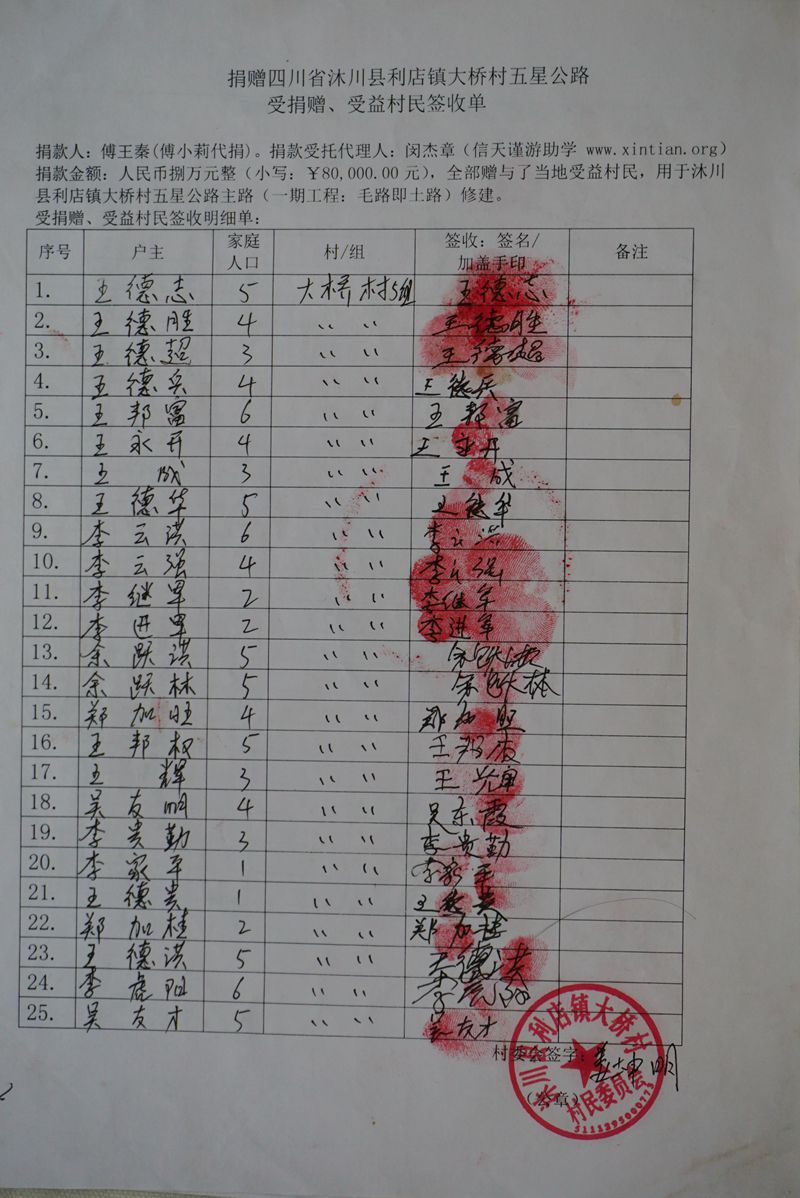 捐赠四川省沐川县利店镇大桥村五星公路
受捐赠、受益村民签收单
捐款人：傅王秦(傅小莉代捐)。捐款受托代理人：闵杰章（信天谨游助学 www.xintian.org）
捐款金额：人民币捌万元整（小写：￥80,000.00 元），全部赠与了当地受益村民，用于沐川
县利店镇大桥村五星公路主路（一期工程：毛路即土路）修建。
受捐赠、受益村民签收明细单：
序号 户主 家庭人口 村/组 签收：签名/加盖手印 备注
1. 王德志 5 大桥村5组 王德志
2. 王德胜 4 〃 〃 王德胜
3. 王德超 3 〃 〃 王德超
4. 王德兵 4 〃 〃 王德兵
5. 王邦富 6 〃 〃 王邦富
6. 王永开 4 〃 〃 王永开
7. 王成 3 〃 〃 王成
8. 王德华 5 〃 〃 王德华
9. 李云洪 6 〃 〃 李云洪
10. 李云强 4 〃 〃 李云强
11. 李继军 2 〃 〃 李继军
12. 李进军 2 〃 〃 李进军
13. 余跃洪 5 〃 〃 余跃洪
14. 余跃林 5 〃 〃 余跃林
15. 郑加旺 4 〃 〃 郑加旺
16. 王邦权 5 〃 〃 王邦权
17. 王辉 3 〃 〃 王光辉
18. 吴友明 4 〃 〃 吴东霞
19. 李贵勤 3 〃 〃 李贵勤
20. 李家平 1 〃 〃 李家平
21. 王德贵 1 〃 〃 王德贵
22. 郑加桂 2 〃 〃 郑加桂
23. 王德洪 5 〃 〃 王德洪
24. 李虎阳 6 〃 〃
25. 吴友才 5 〃 〃 吴友才
村委会签字：
（公章）
沐川县利店镇大桥村
村民委员会
5111295000173